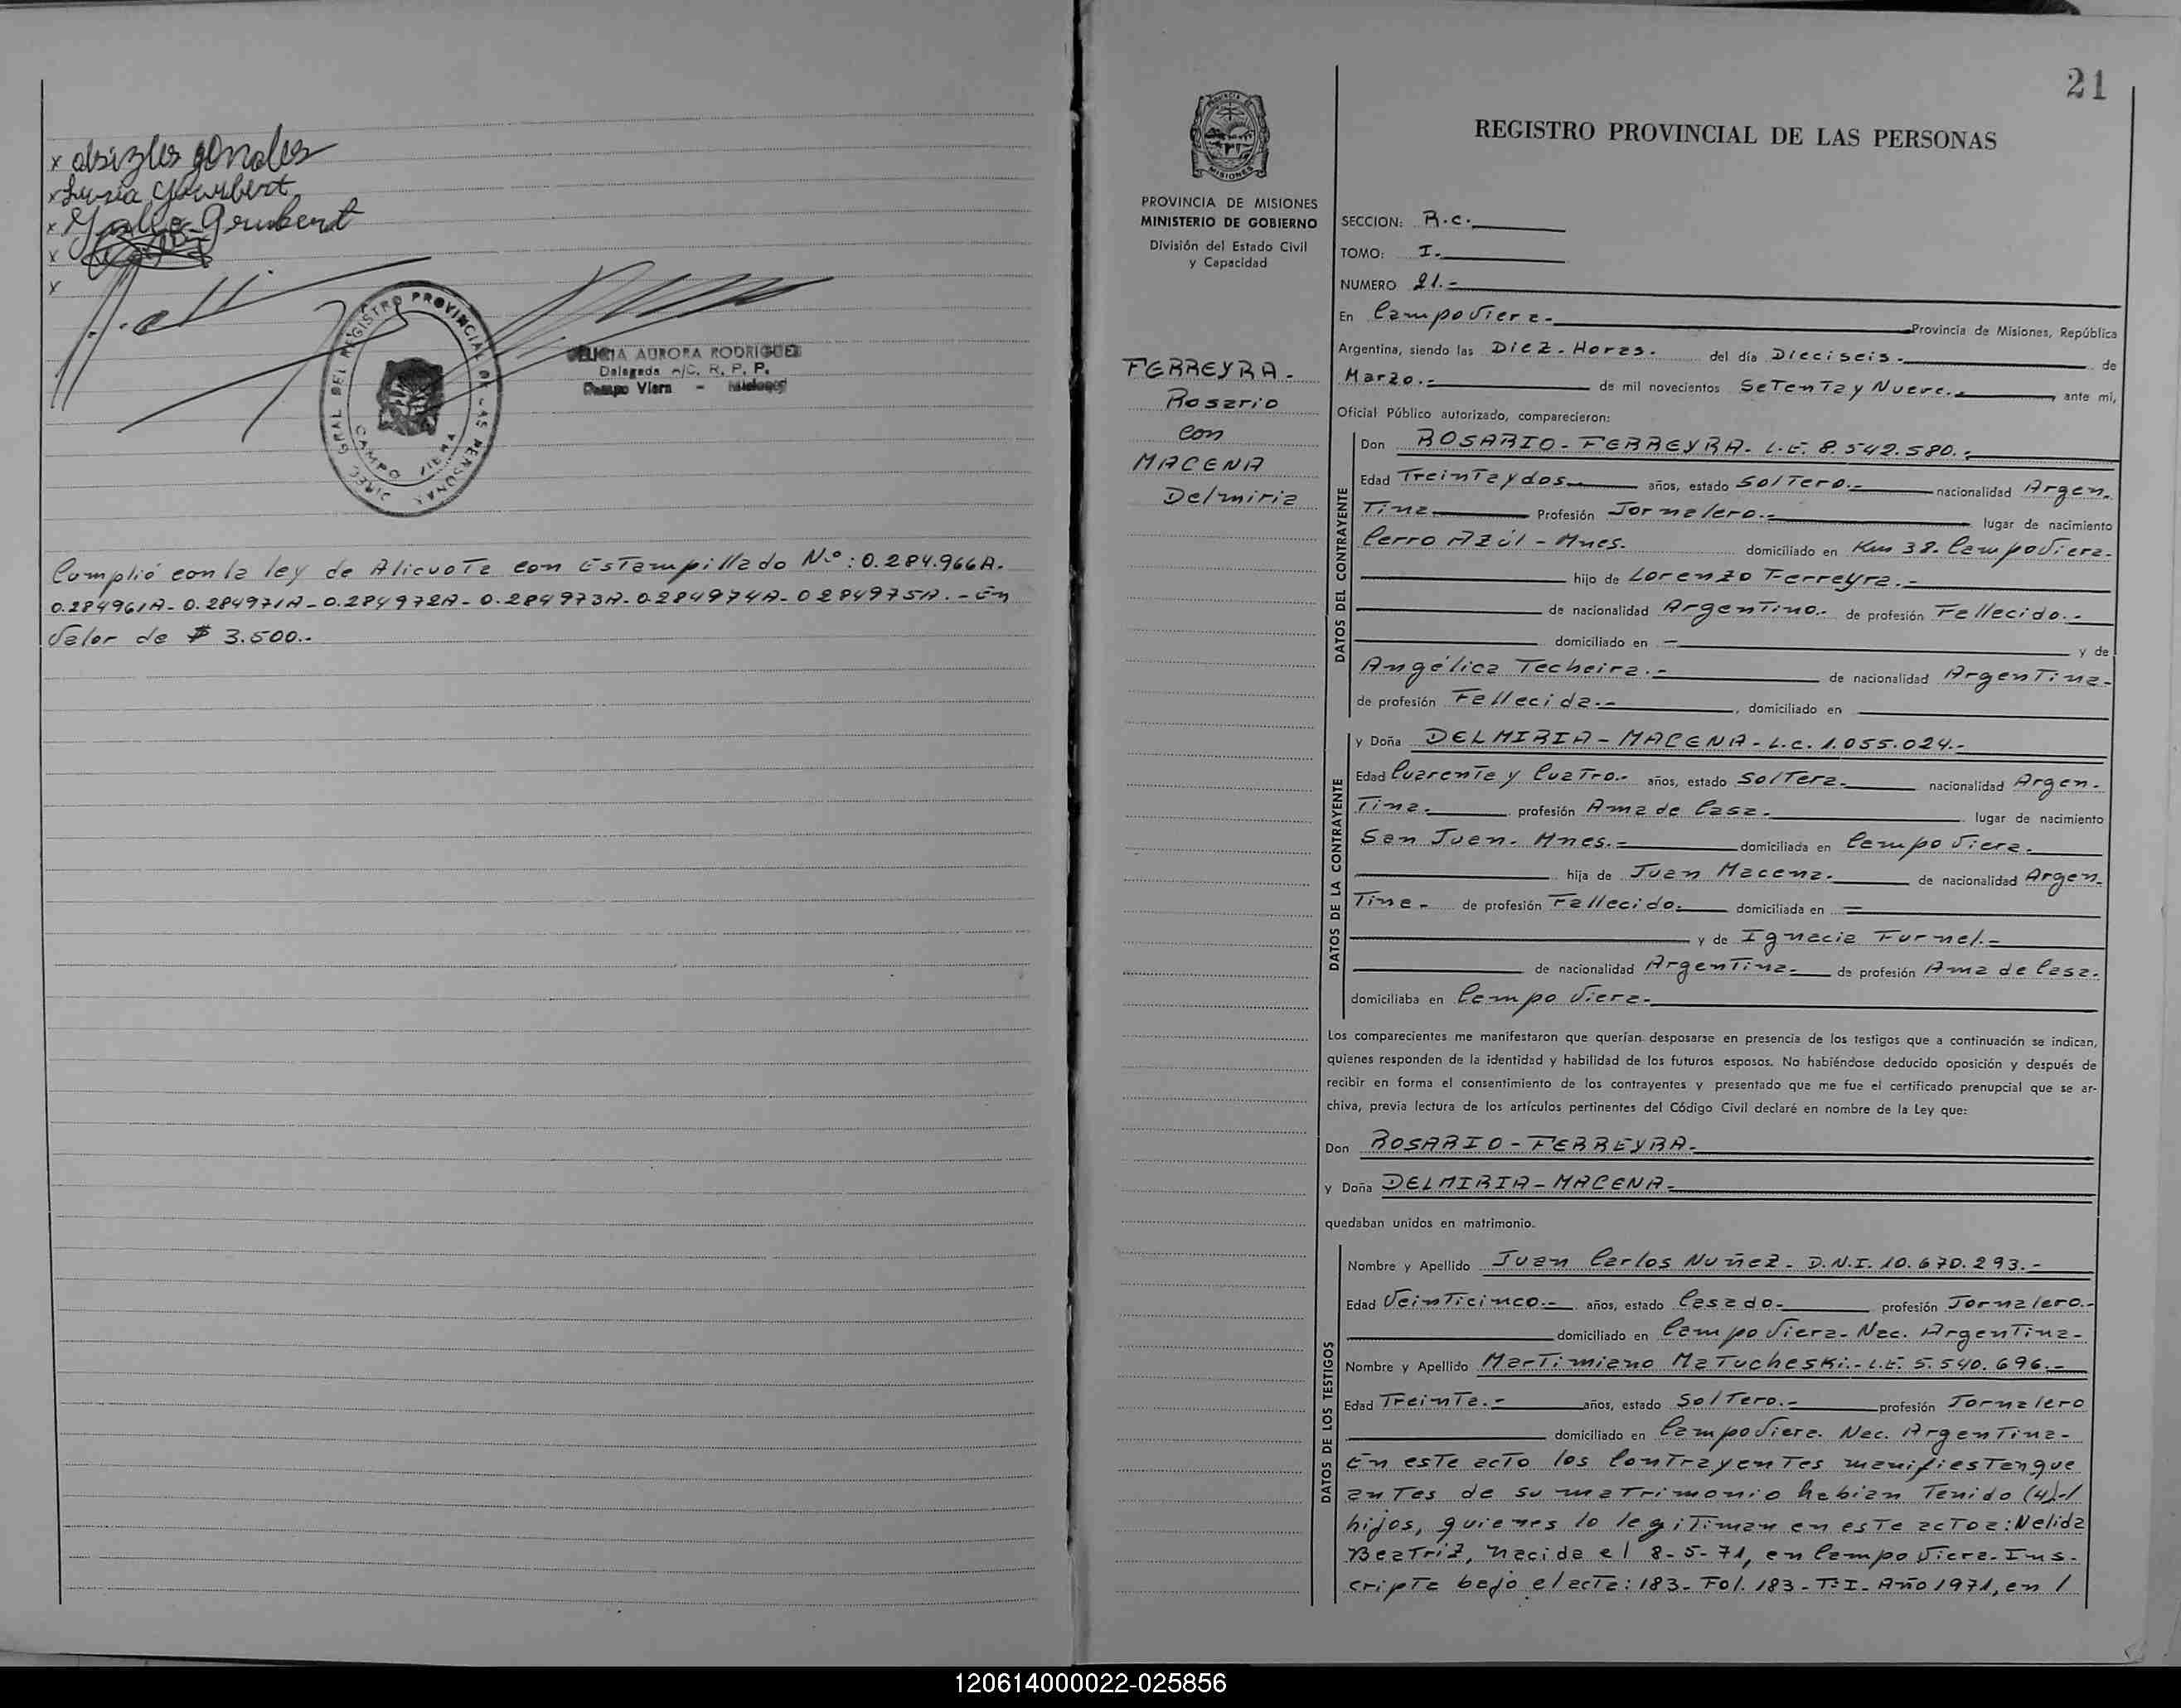 x
x
x
x
x
DIREC. GRAL. DEL REGISTRO PROVINCIAL DE LAS PERSONAS
CAMPO VIERA
AURORA RODRIGUEZ
Delegada A/C. R. P. P.
Campo Viera - Misiones
Cumplió con la ley de Alicuota con Estampillado Nº: 0.284.966A.
0.284961A- 0.284971A- 0.284972A- 0.284973A- 0.284974A- 0284975A.- En
Valor de $ 3.500.-
21
PROVINCIA DE MISIONES
MINISTERIO DE GOBIERNO
División del Estado Civil
y Capacidad
FERREYRA-
Rosario
con
MACENA
Delmiria
REGISTRO PROVINCIAL DE LAS PERSONAS
SECCION: R.C.
TOMO: I.
NUMERO 21.-
En Campo Viera- Provincia de Misiones, República
Argentina, siendo las Diez-Horas. del día Dieciseis.- de
Marzo.- de mil novecientos SeTenTa y Nueve.- ante mi,
Oficial Público autorizado, comparecieron:
DATOS DEL CONTRAYENTE
Don ROSARIO-FERREYRA- L.E. 8.542.580.-
Edad Treintaydos años, estado Soltero.- nacionalidad Argen-
Tina Profesión Jornalero.- lugar de nacimiento
Cerro Azúl-Mnes. domiciliado en Km 38-Campo Viera-
hijo de Lorenzo Ferreyra.-
de nacionalidad Argentino.- de profesión Fallecido.-
domiciliado en - y de
Angélica Techeira.- de nacionalidad Argentina-
de profesión Fallecida.- , domiciliado en
DATOS DE LA CONTRAYENTE
y Doña DELMIRIA-MACENA-L.C. 1.055.024.-
Edad Cuarenta y Cuatro.- años, estado Soltera- nacionalidad Argen-
Tina- profesión Ama de Casa- lugar de nacimiento
San Juan-Mnes.- domiciliada en Campo Viera-
hija de Juan Macena- de nacionalidad Argen-
Tina- de profesión Fallecido- domiciliada en -
y de Ignacia Furnel.-
de nacionalidad Argentina- de profesión Ama de Casa-
domiciliaba en Campo Viera-
Los comparecientes me manifestaron que querían desposarse en presencia de los testigos que a continuación se indican,
quienes responden de la identidad y habilidad de los futuros esposos. No habiéndose deducido oposición y después de
recibir en forma el consentimiento de los contrayentes y presentado que me fue el certificado prenupcial que se ar-
chiva, previa lectura de los artículos pertinentes del Código Civil declaré en nombre de la Ley que:
Don ROSARIO-FERREYRA-
y Doña DELMIRIA-MACENA-
quedaban unidos en matrimonio.
DATOS DE LOS TESTIGOS
Nombre y Apellido Juan Carlos Nuñez- D.N.I. 10.670.293.-
Edad Veinticinco.- años, estado Casado- profesión Jornalero.-
domiciliado en Campo Viera-Nac. Argentina-
Nombre y Apellido Martimiano Matucheski.-L.E. 5.540.696.-
Edad Treinta.- años, estado Soltero.- profesión Jornalero
domiciliado en Campo Viera. Nac. Argentina-
En este acto los Contrayentes manifiestan que
antes de su matrimonio habian Tenido (4)-/
hijos, quienes lo legitiman en este acto a: Nelida
Beatriz, nacida el 8-5-71, en Campo Viera-Ins-
cripta bajo el acta: 183- Fol. 183-Tº I- Año 1971, en /
120614000022-025856